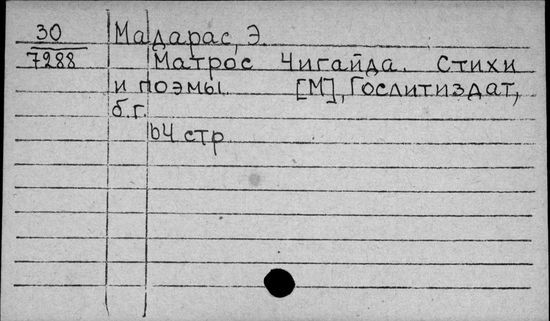 30
7288
Мадарас, Э.
Матрос Чигайда. Стихи
и поэмы. [М], Гослитиздат,
б.г.
64 стр